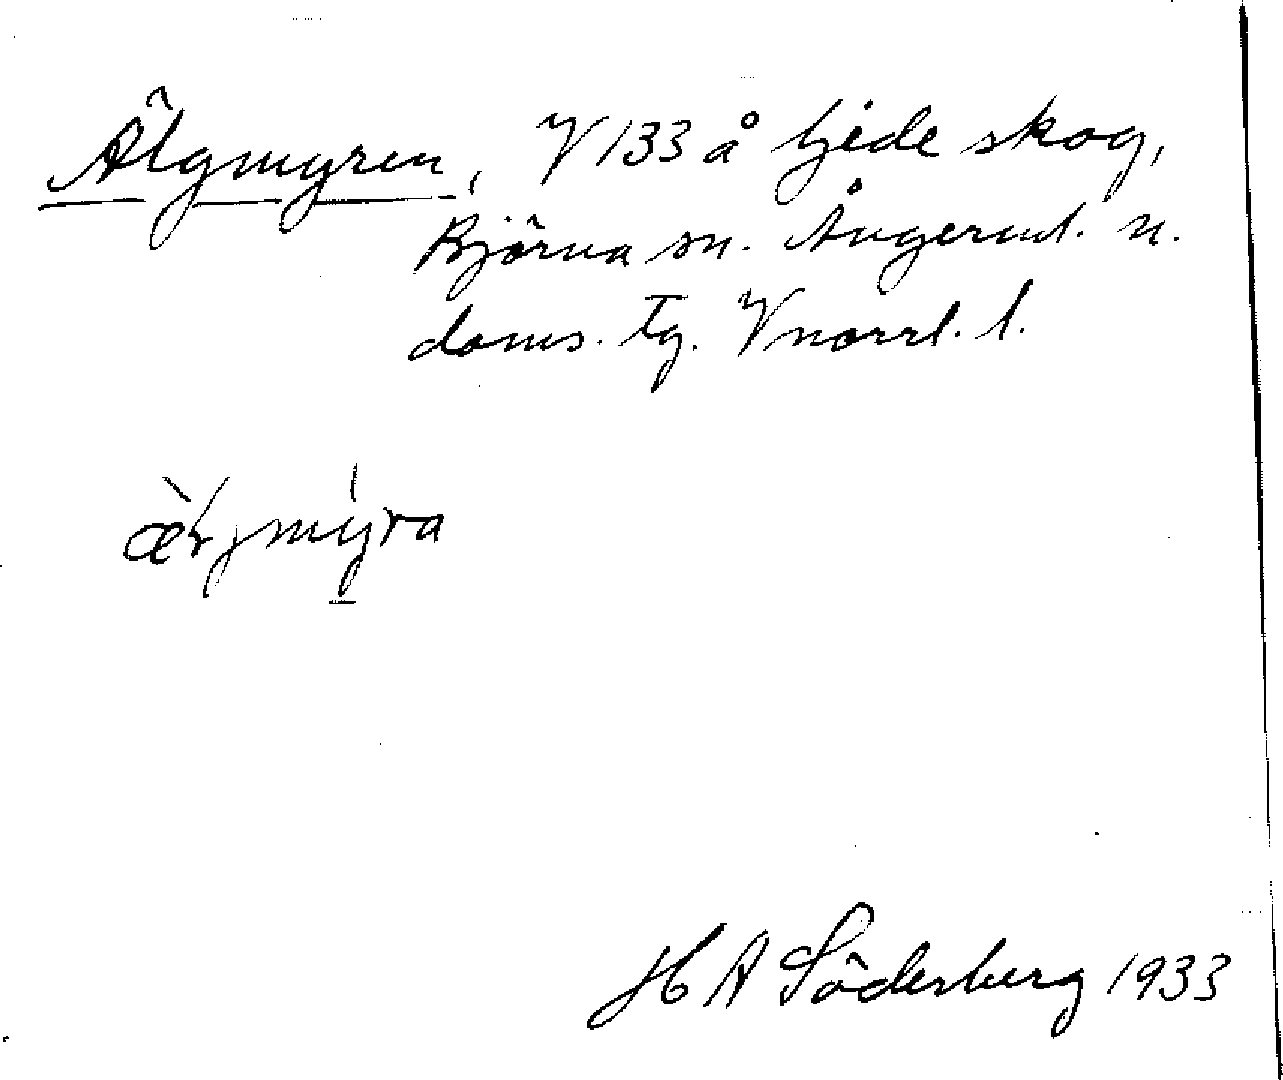 Älgmyren, V 133 å Gede skog,
Björna sn. Ångerml. n.
doms. tg. Vnorrl. l.
ær̀jmy̍ra
H A Söderberg 1933